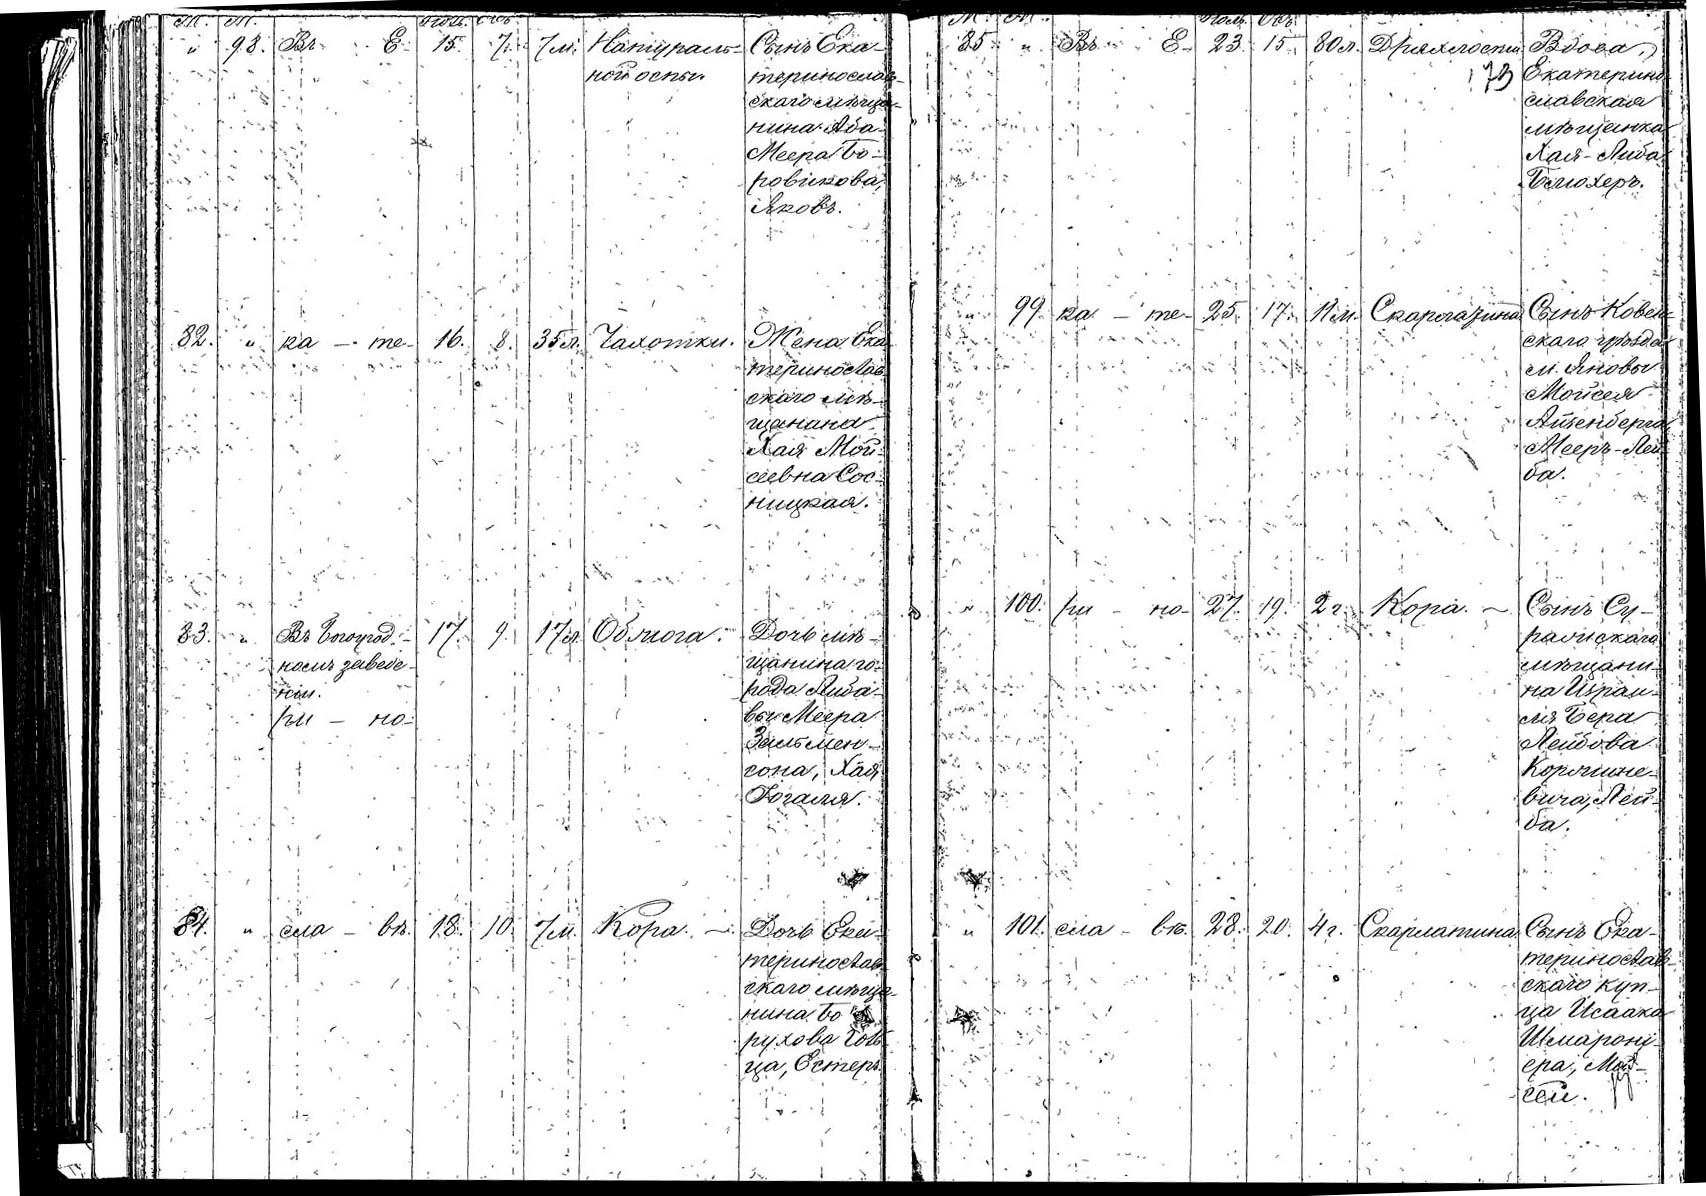 " 98. Въ Е- 15. 7. 7м. Натураль-
ной оспы.
Сынъ Ека-
теринослав-
скаго мѣща-
нина Аба-
Меера Бо-
ровикова,
Яковъ.
82. " ка - те- 16. 8. 35л. Чахотки.
Жена Ека-
теринослав-
скаго мѣ-
щанина
Хая Мои-
сеевна Сос-
ницкая.
83. " Въ Богоугод-
номъ заведе-
нiи.
ри - но-
17. 9. 17л.
Дочь мѣ-
щанина го-
рода Либа-
вы Меера
Зальмен-
сона, Хая
84. " сла - вѣ. 18. 10. 7м. Кора. -
Дочь Ека-
теринослав-
скаго мѣща-
нина Бо-
рухова
ца, Естеръ
85 " Въ Е- 23. 15 80л. Дряхлости
173
Вдова,
Екатерино-
славская
мѣщанка
Хая-Либа
Блюхеръ.
" 99. ка - те- 25. 17. 11м. Скарлатина
Сынъ Ковен-
скаго уѣзда
м. Яновы
Мойсея
Айзенберга
Мееръ-Лей-
ба.
" 100. ри - но- 27. 19. 2г. Кора. -
Сынъ Су-
ражскаго
мѣщани-
на Израи-
ля Бера
Лейбова
вича, Лей-
ба.
" 101. сла - вѣ. 28. 20. 4г. Скарлатина.
Сынъ Ека-
теринослав-
скаго куп-
ца Исаака
Шмароне-
ера, Мой-
сей.